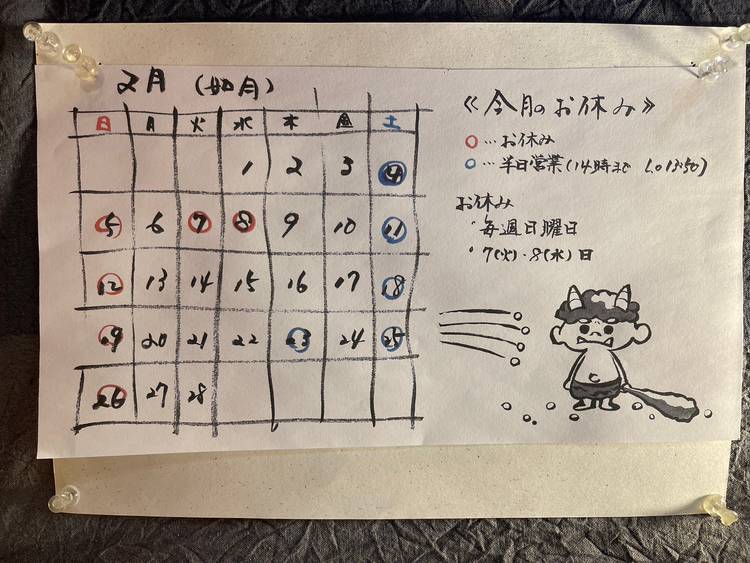 2月 (如月)
日 月 火 水 木 金 土
1 2 3 4
5 6 7 8 9 10 11
12 13 14 15 16 17 18
19 20 21 22 23 24 25
26 27 28
《今月のお休み》
○…お休み
○…半日営業(14時まで L.o 13:50)
お休み
・毎週日曜日
・7(火)・8(水)日